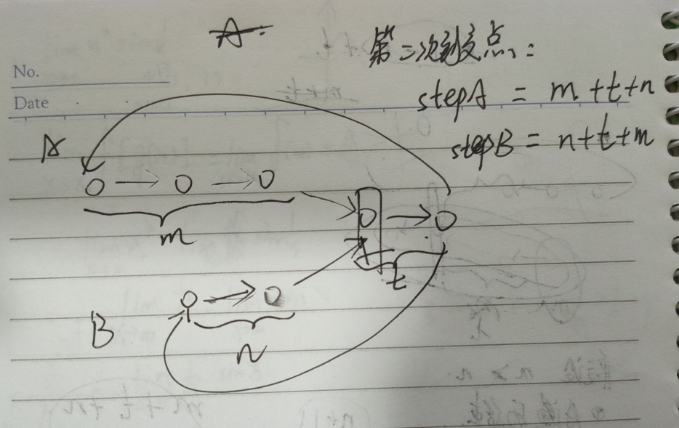 A
No.
Date
第二次到交点:
stepA = m+t+n
stepB = n+t+m
A
m
t
B
n